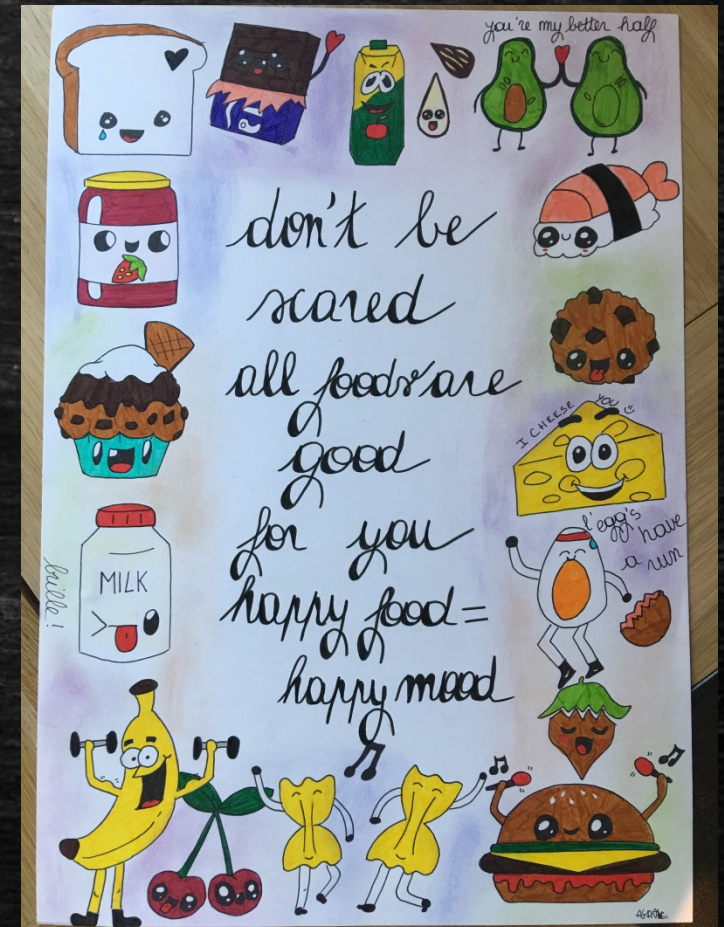 you're my better half
don't be
scared
all foods are
good
for you
happy food =
happy mood
I CHEESE YOU
l'egg's have
a run
MILK